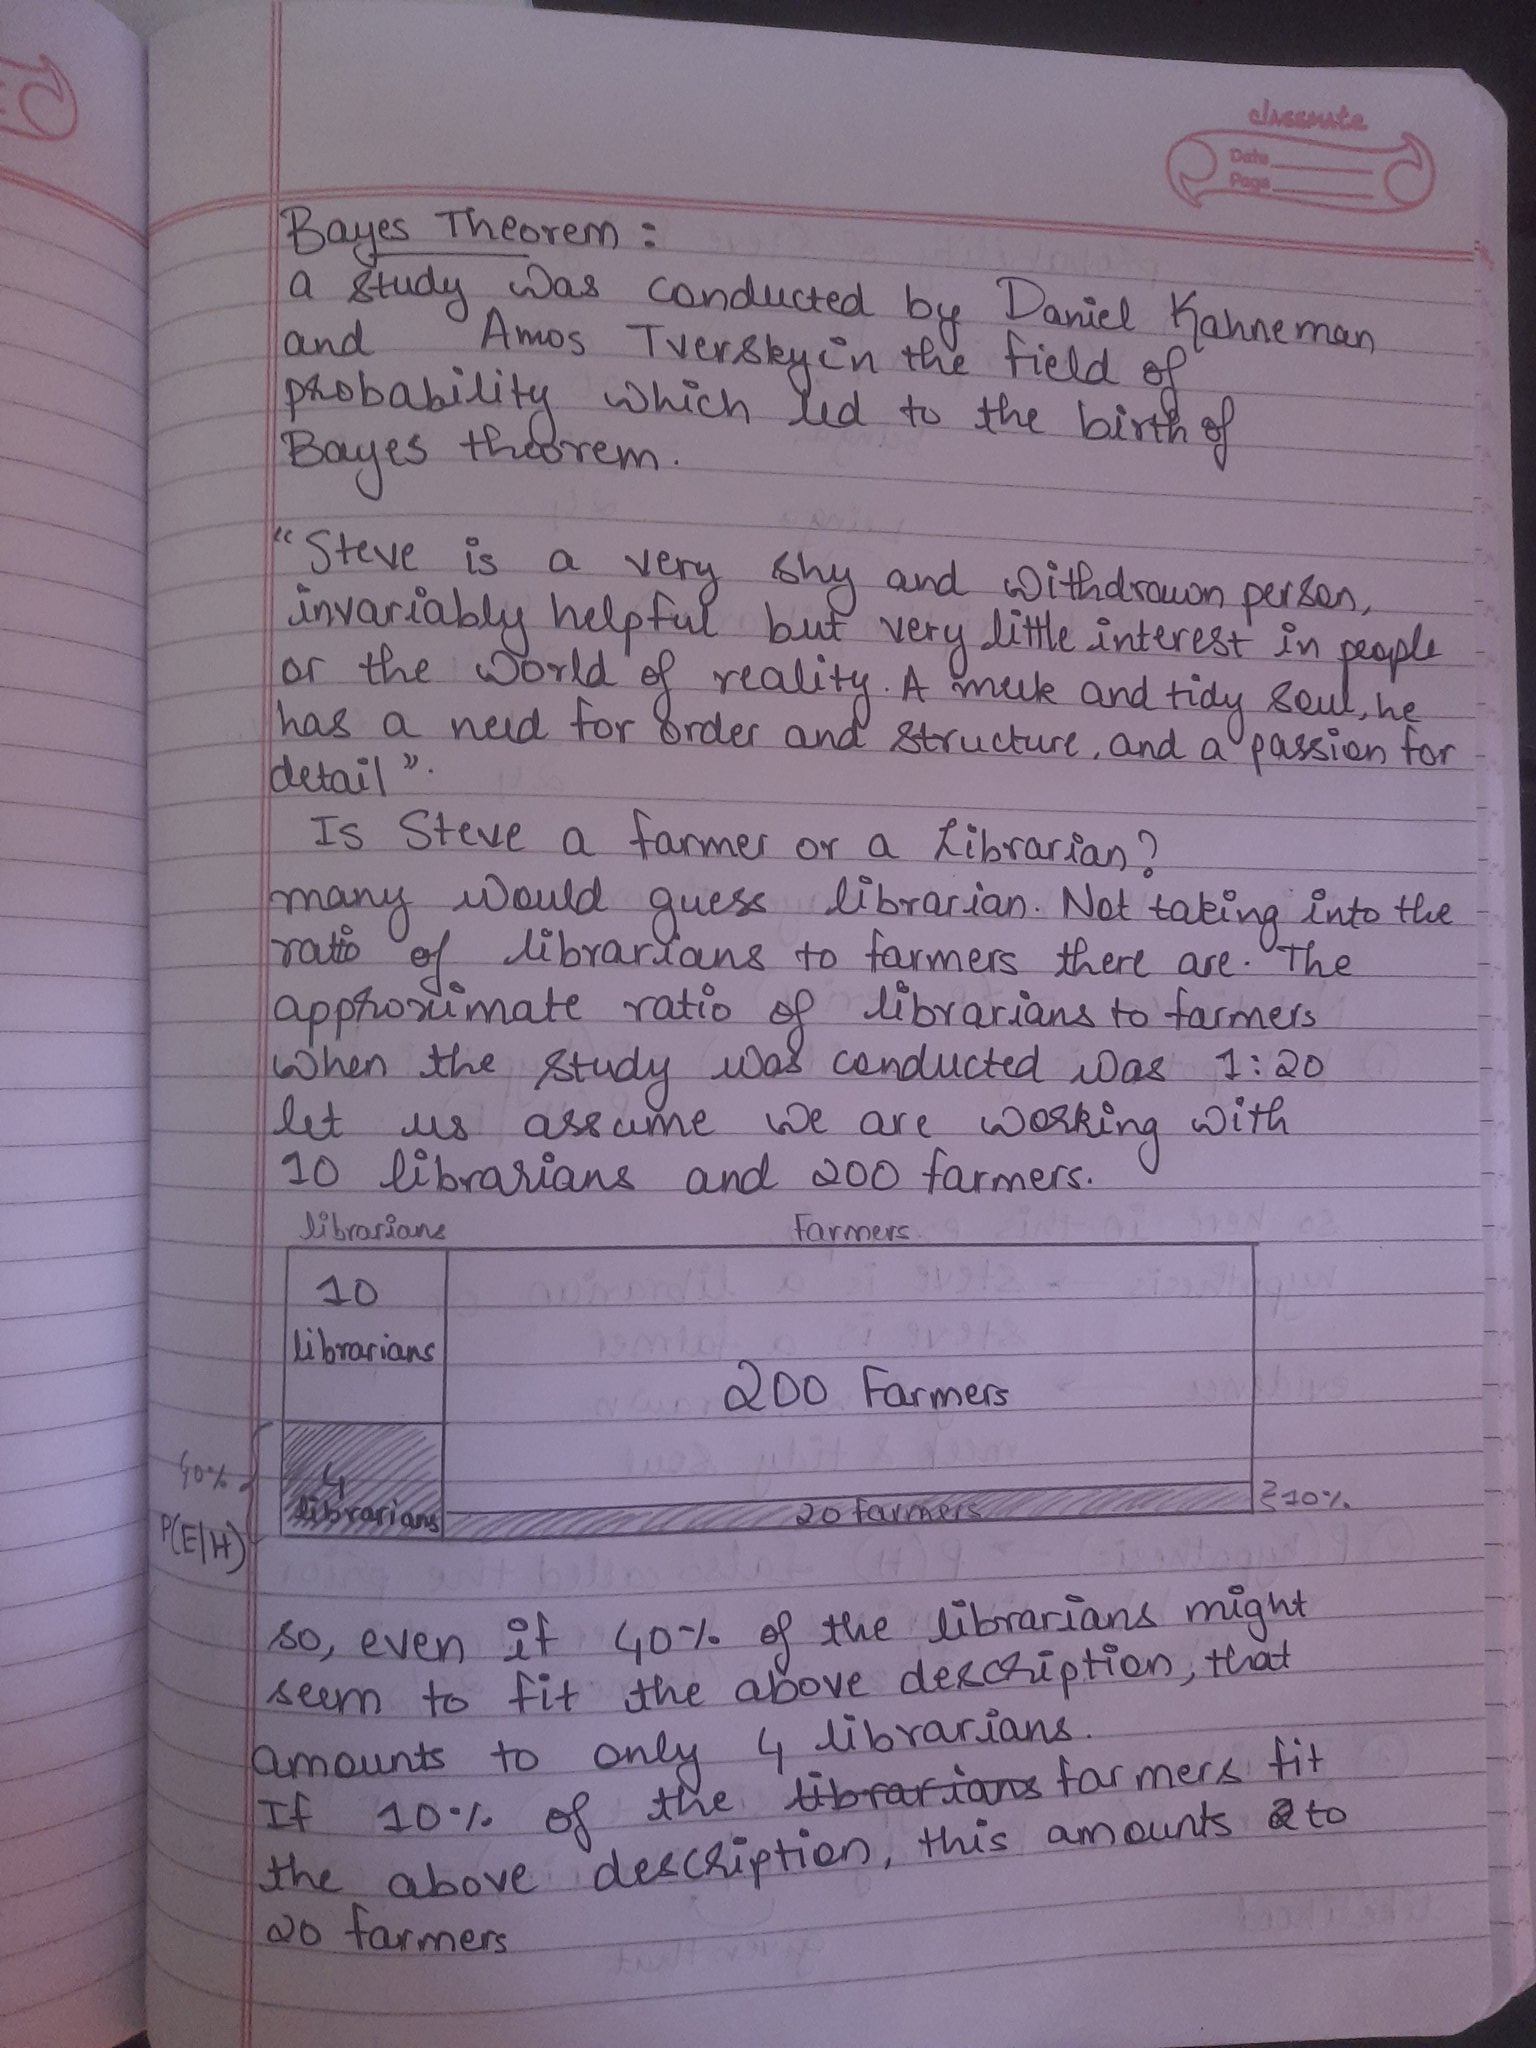 classmate
Date
Page
Bayes Theorem :
a study was conducted by Daniel Kahneman
and Amos Tversky in the field of
probability which led to the birth of
Bayes theorem.
"Steve is a very shy and withdrawn person,
invariably helpful but very little interest in people
or the world of reality. A meek and tidy soul, he
has a need for order and structure, and a passion for
detail".
Is Steve a farmer or a Librarian?
many would guess librarian. Not taking into the
ratio of librarians to farmers there are. The
approximate ratio of librarians to farmers
when the study was conducted was 1:20
let us assume we are working with
10 librarians and 200 farmers.
librarians Farmers
10
librarians
200 Farmers
40%
4
librarians
20 farmers
10%
P(E/H)
so, even if 40% of the librarians might
seem to fit the above description, that
amounts to only 4 librarians.
If 10% of the librarians farmers fit
the above description, this amounts to
20 farmers